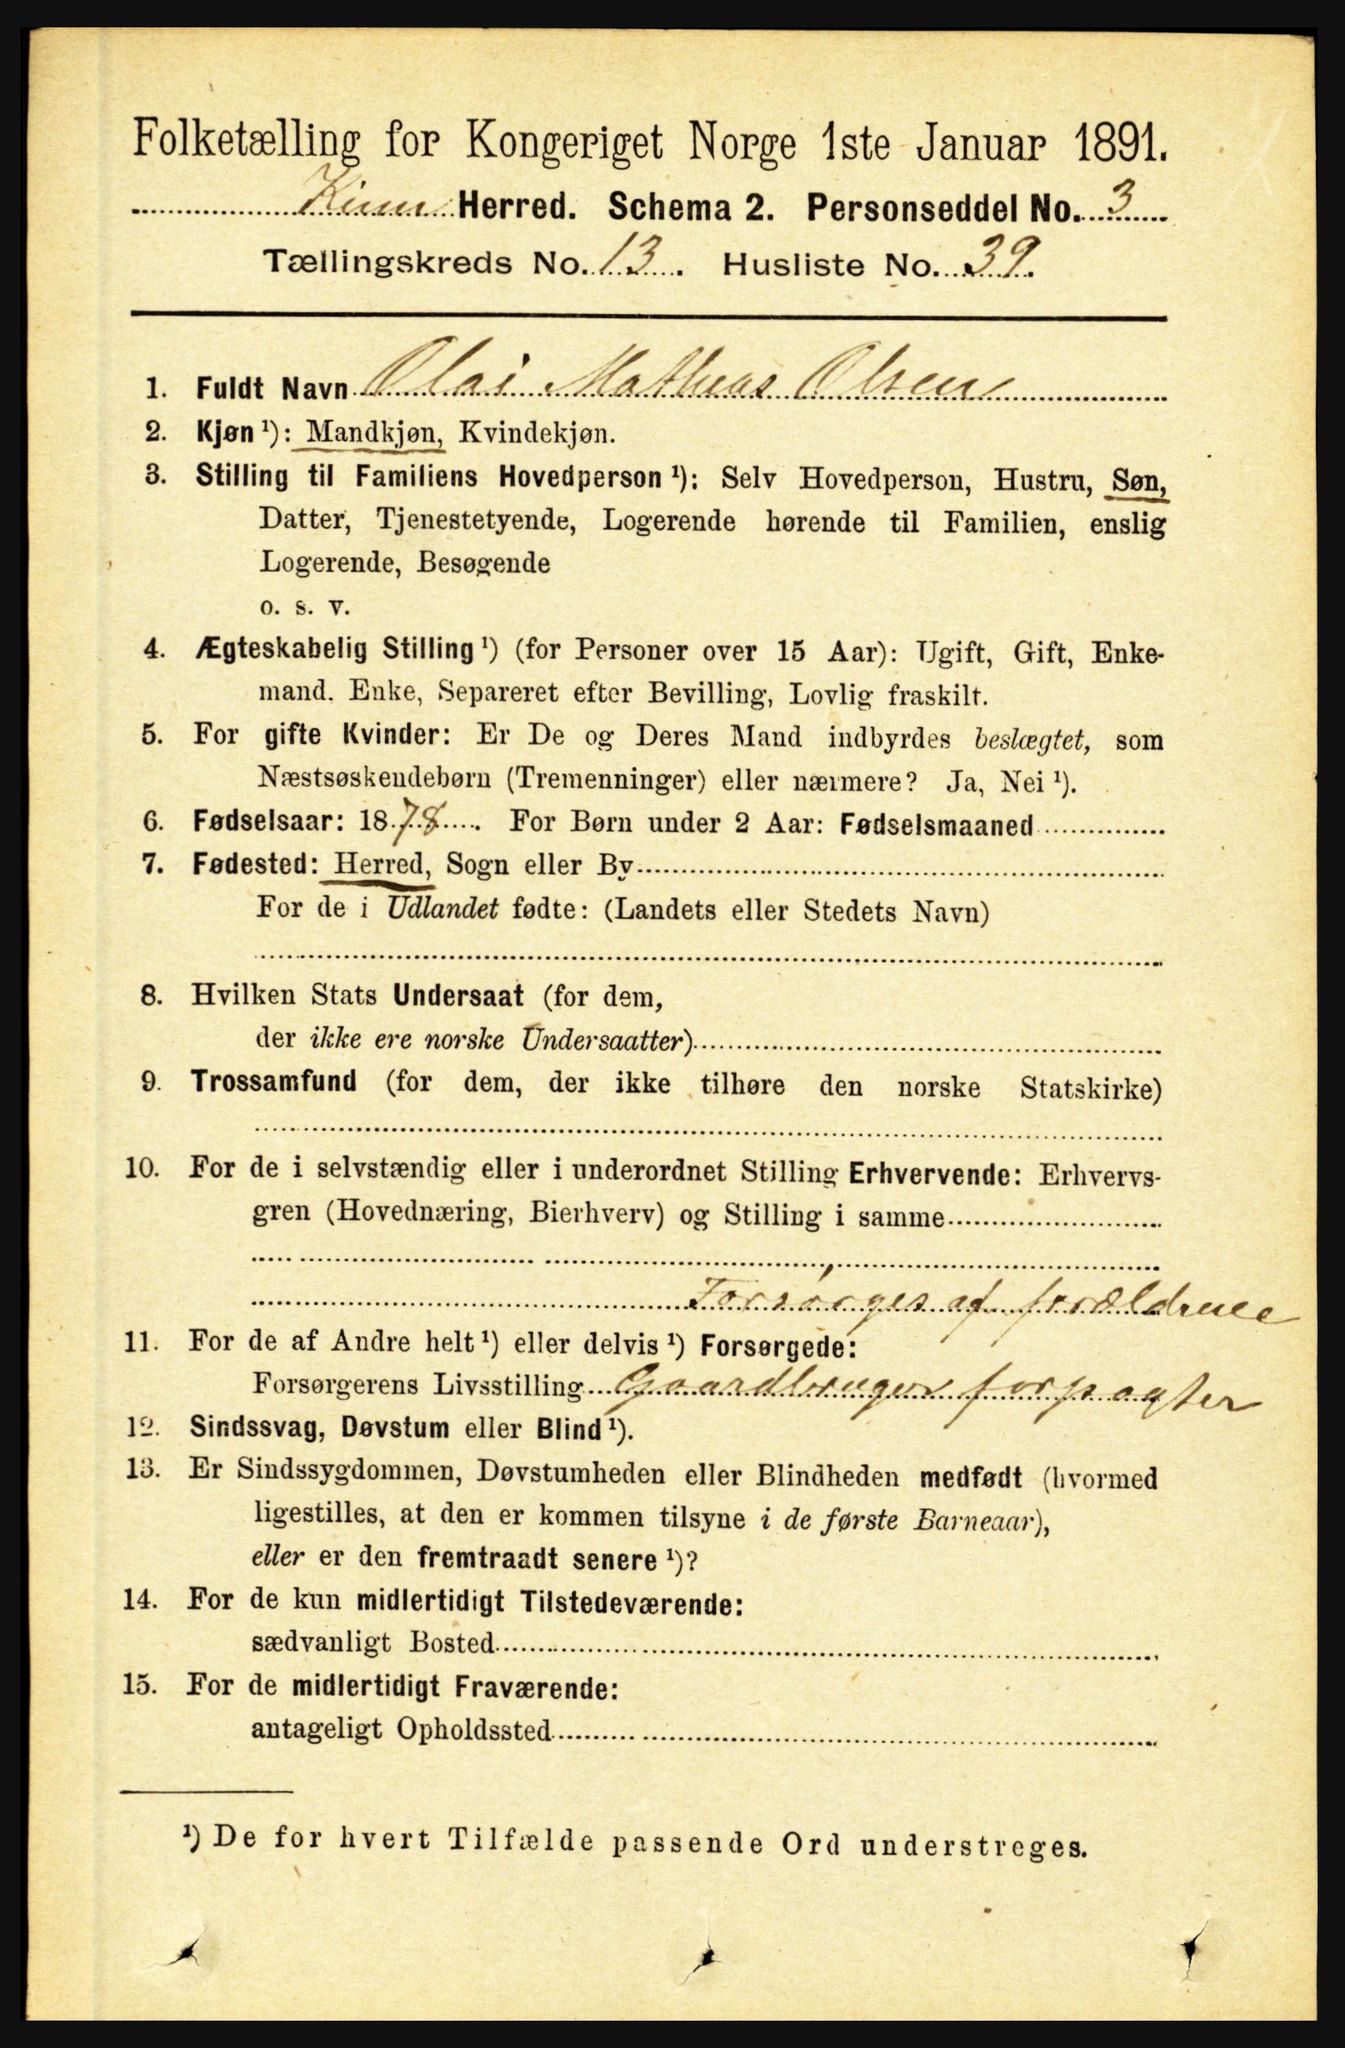 Folketælling for Kongeriget Norge 1ste Januar 1891.
Kinn Herred. Schema 2. Personseddel No. 3
Tællingskreds No. 13. Husliste No. 39.
1. Fuldt Navn Olai Mathias Olsen
2. Kjøn ¹): Mandkjøn, Kvindekjøn.
3. Stilling til Familiens Hovedperson ¹): Selv Hovedperson, Hustru, Søn,
Datter, Tjenestetyende, Logerende hørende til Familien, enslig
Logerende, Besøgende
o. s. v.
4. Ægteskabelig Stilling ¹) (for Personer over 15 Aar): Ugift, Gift, Enke-
mand. Enke, Separeret efter Bevilling, Lovlig fraskilt.
5. For gifte Kvinder: Er De og Deres Mand indbyrdes beslægtet, som
Næstsøskendebørn (Tremenninger) eller nærmere? Ja, Nei ¹).
6. Fødselsaar: 1878. For Børn under 2 Aar: Fødselsmaaned
7. Fødested: Herred, Sogn eller By
For de i Udlandet fødte: (Landets eller Stedets Navn)
8. Hvilken Stats Undersaat (for dem,
der ikke ere norske Undersaatter)
9. Trossamfund (for dem, der ikke tilhøre den norske Statskirke)
10. For de i selvstændig eller i underordnet Stilling Erhvervende: Erhvervs-
gren (Hovednæring, Bierhverv) og Stilling i samme
Forsørges af forældrene
11. For de af Andre helt ¹) eller delvis ¹) Forsørgede:
Forsørgerens Livsstilling Gaardbruger forpagter
12. Sindssvag, Døvstum eller Blind ¹).
13. Er Sindssygdommen, Døvstumheden eller Blindheden medfødt (hvormed
ligestilles, at den er kommen tilsyne i de første Barneaar),
eller er den fremtraadt senere ¹)?
14. For de kun midlertidigt Tilstedeværende:
sædvanligt Bosted
15. For de midlertidigt Fraværende:
antageligt Opholdssted
¹) De for hvert Tilfælde passende Ord understreges.